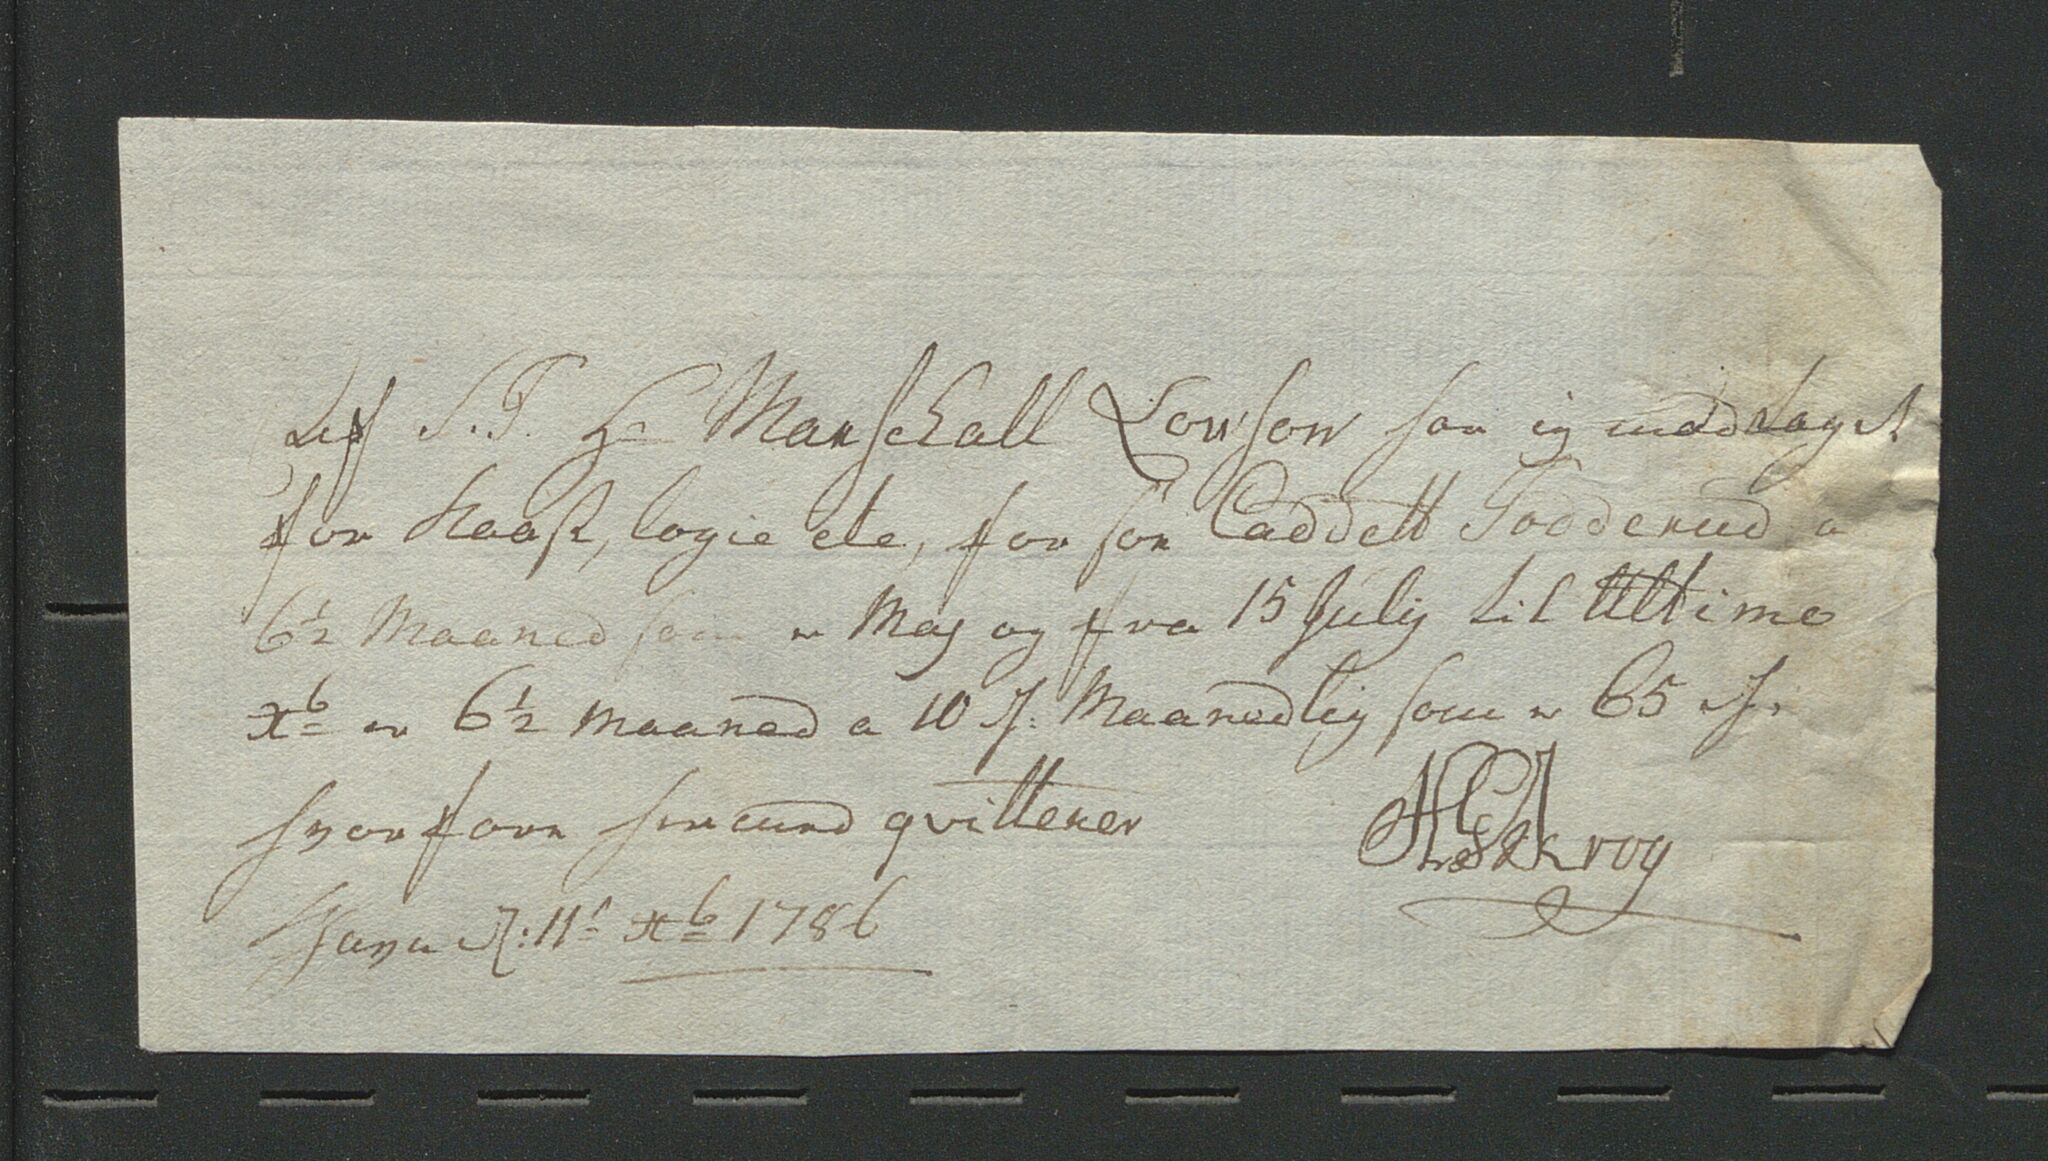 Af S. T. Hr Marschall Lowson har ieg moddtaget
for Kaast, logie etc, for hör Caddett Todderud a
6½ Maaned som er Maj og fra 15 Julij til Ultimo
xb er 6½ maaned a 10 r: Maanedlig som er 65 r
hvorforr herved qvitterer
d: 11t xb 1786